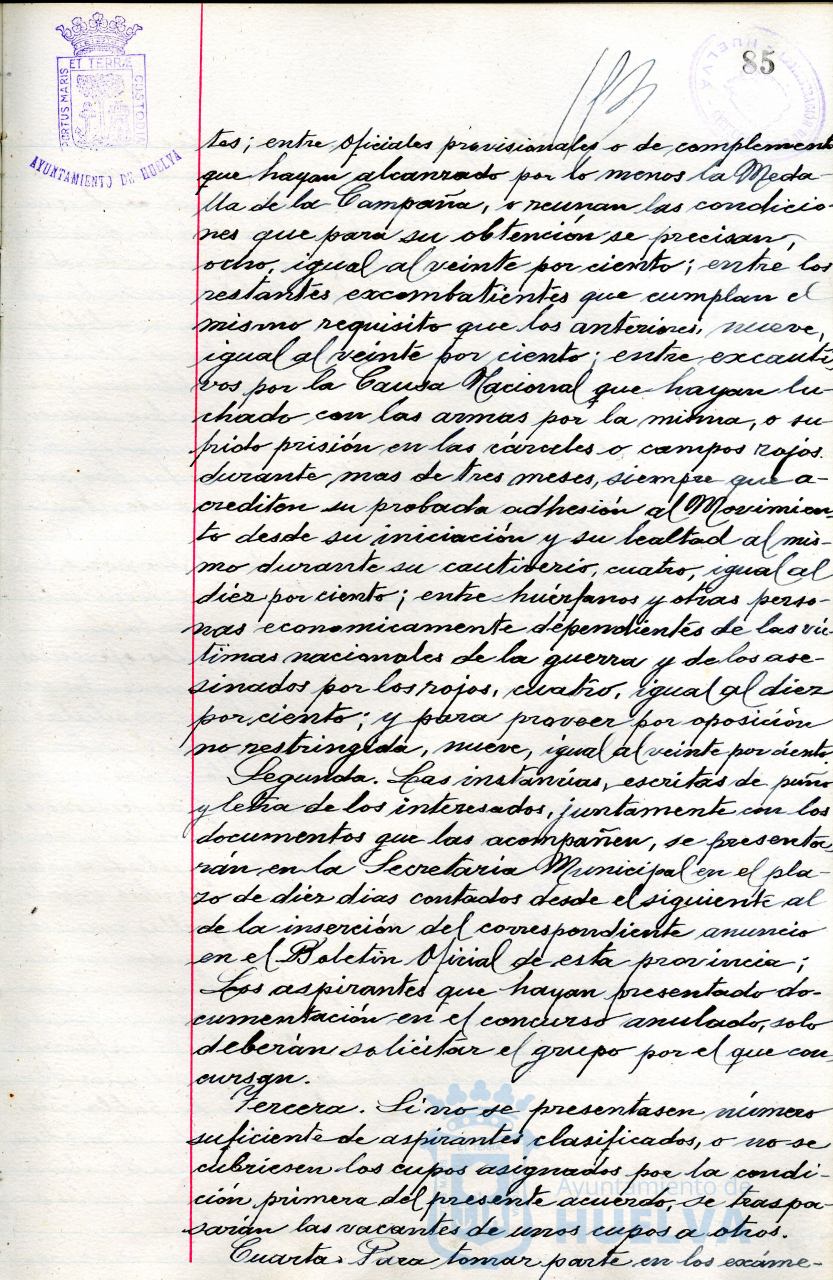 ET TERRÆ
PORTUS MARIS
CUSTODIA
AYUNTAMIENTO DE HUELVA
HUELVA
85
tes; entre Oficiales provisionales o de complement
que hayan alcanzado por lo menos la Meda-
lla de la Campaña, o reunan las condicio-
nes que para su obtención se precisan,
ocho, igual al veinte por ciento; entre los
restantes excombatientes que cumplan el
mismo requisito que los anteriores, nueve,
igual al veinte por ciento; entre excauti
vos por la Causa Nacional que hayan lu-
chado con las armas por la misma, o su
frido prisión en las cárceles o campos rojos
durante mas de tres meses, siempre que a-
crediten su probada adhesión al Movimien-
to desde su iniciación y su lealtad al mis-
mo durante su cautiverio, cuatro, igual al
diez por ciento; entre huérfanos y otras perso-
nas economicamente dependientes de las víc-
timas nacionales de la guerra y de los ase-
sinados por los rojos, cuatro, igual al diez
por ciento; y para proveer por oposición
no restringida, nueve, igual al veinte por ciento
Segunda. Las instancias, escritas de puño
y letra de los interesados, juntamente con los
documentos que las acompañen, se presenta-
rán en la Secretaría Municipal en el pla-
zo de diez dias contados desde el siguiente al
de la inserción del correspondiente anuncio
en el Boletin Oficial de esta provincia;
Los aspirantes que hayan presentado do-
cumentación en el concurso anulado, solo
deberán solicitar el grupo por el que con-
cursan.
Tercera. Si no se presentasen número
suficiente de aspirantes clasificados, o no se
cubriesen los cupos asignados por la condi-
ción primera del presente acuerdo, se traspa-
sarán las vacantes de unos cupos a otros.
Cuarta. Para tomar parte en los exáme-
Ayuntamiento de
HUELVA